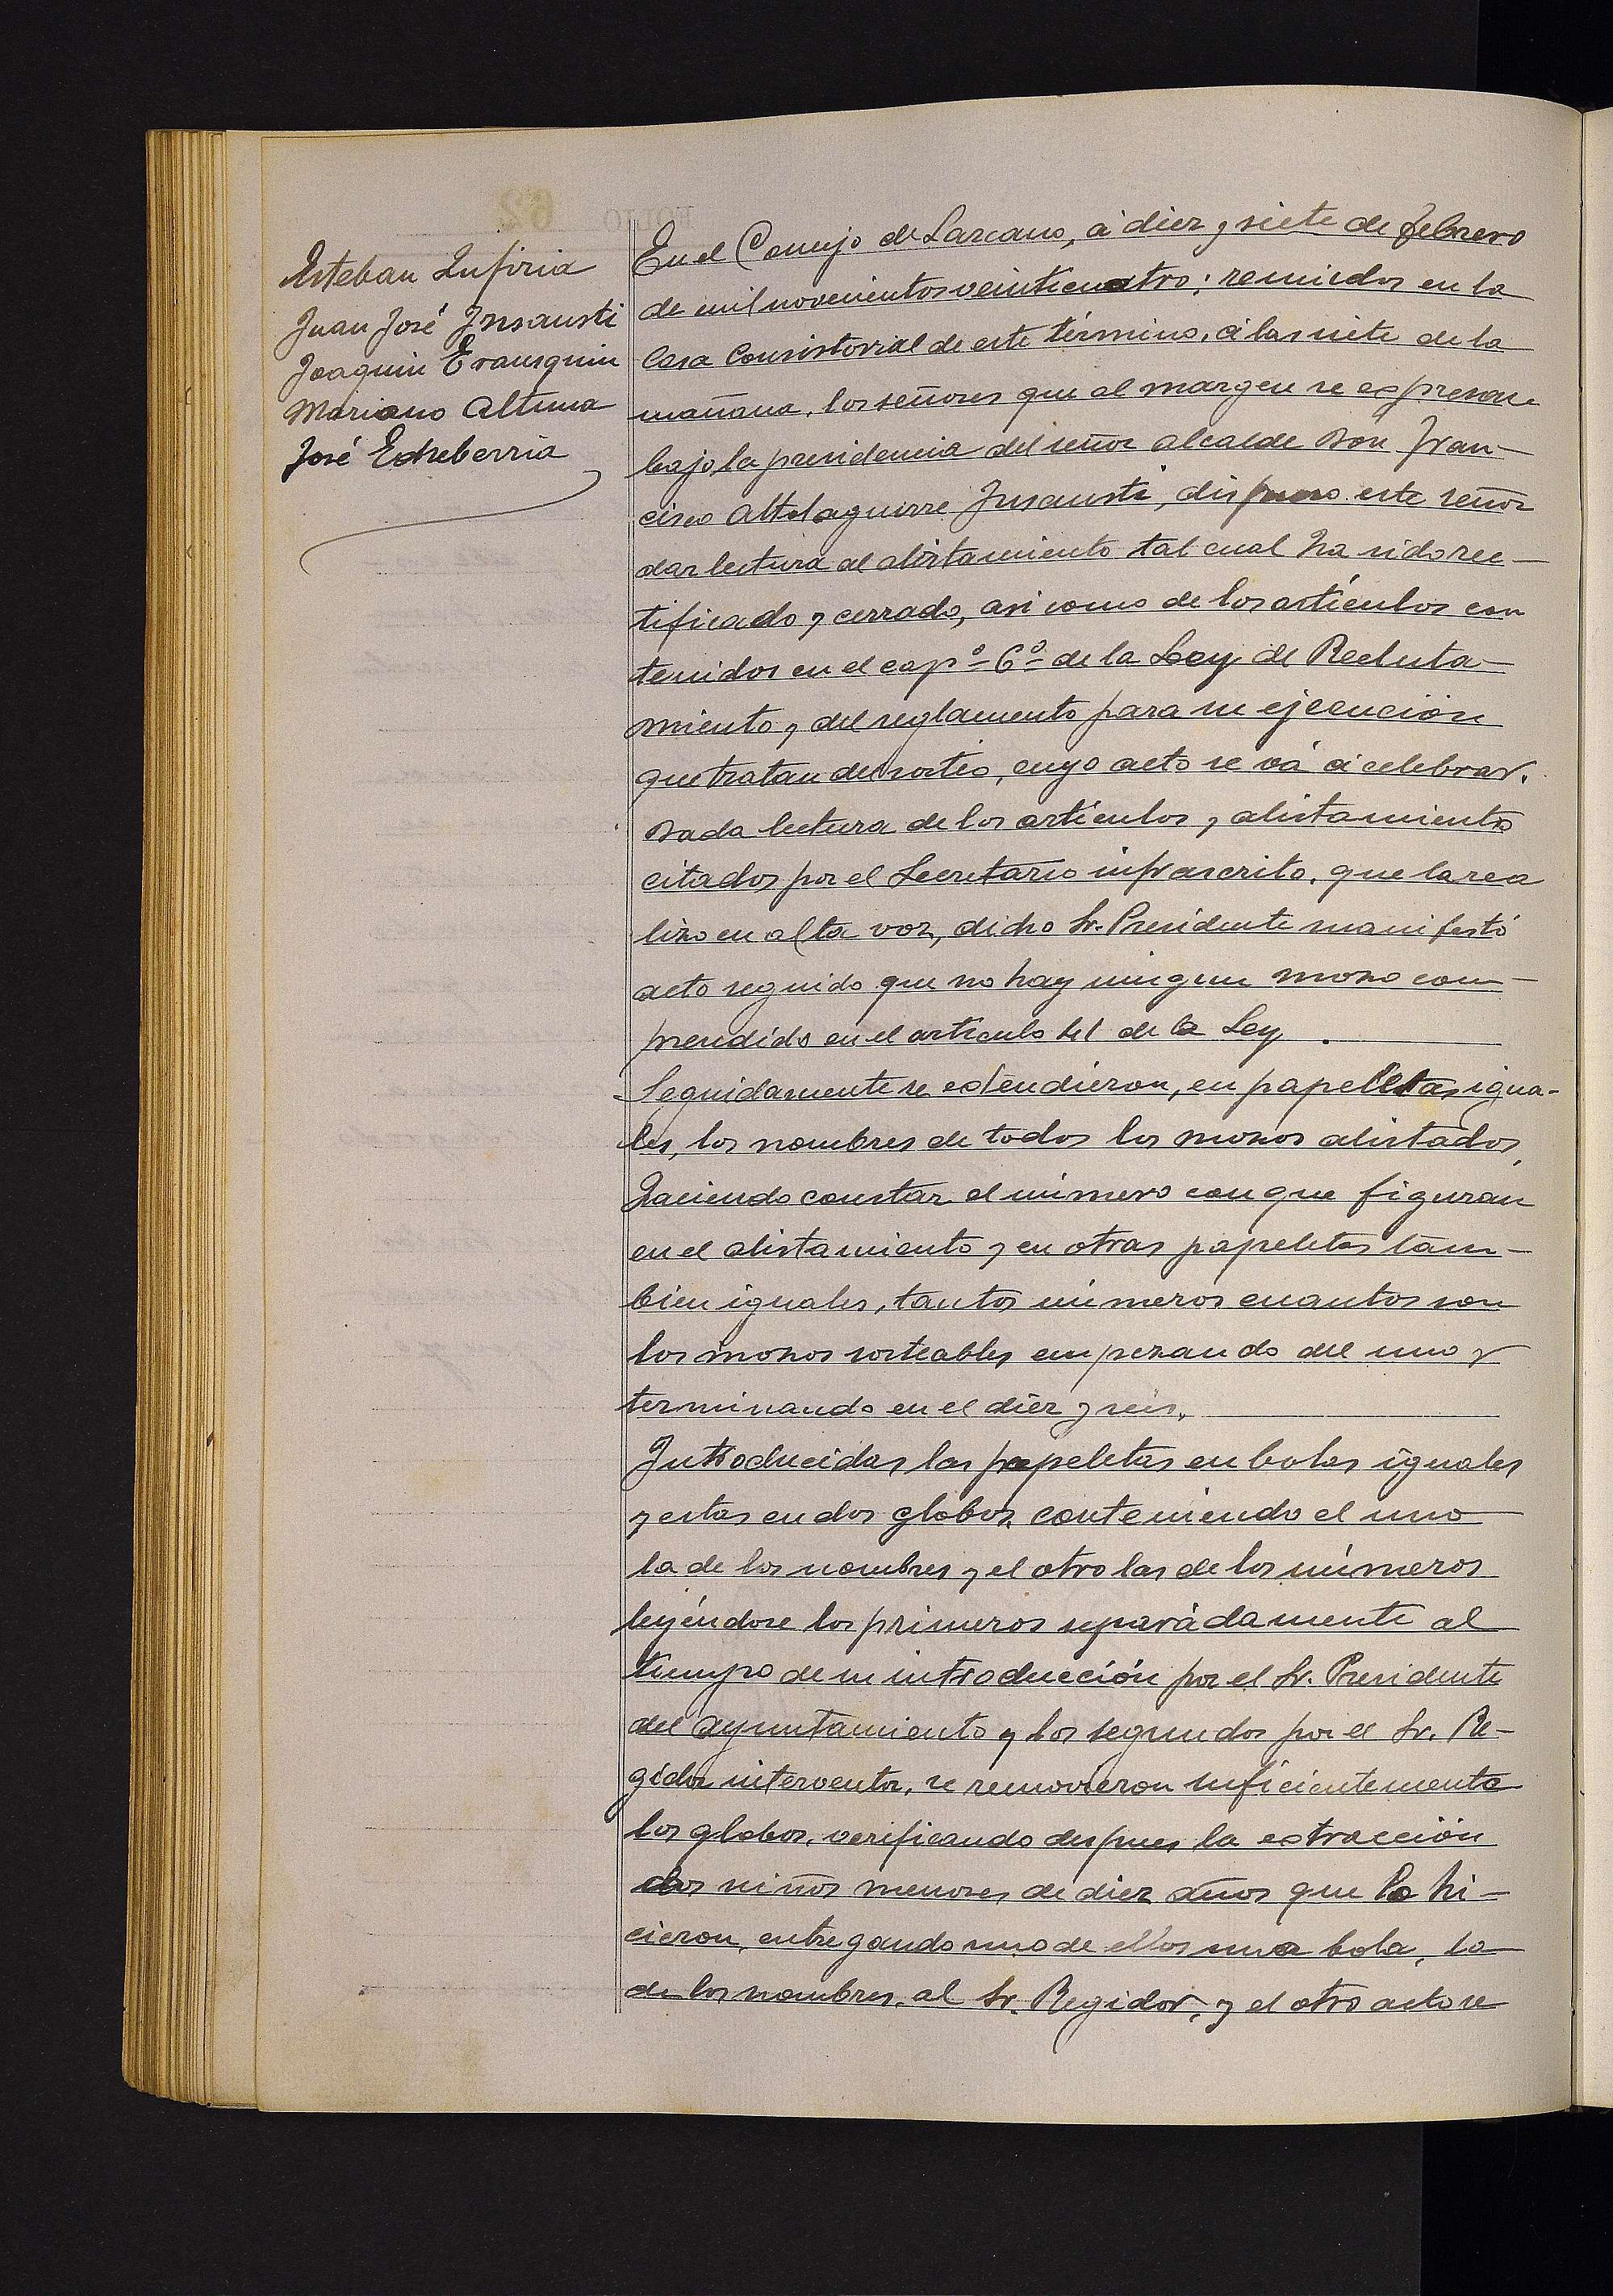 Esteban Zufiria
Juan José Insausti
Joaquin Erausquin
Mariano Altuna
José Echeberria
En el Concejo de Lazcano, á diez y siete de febrero
de mil novecientos veinticuatro; reunidos en la
Casa Consistorial de este término, á las siete de la
mañana, los señores que al margen se expresan
bajo la presidencia del señor alcalde Don Fran-
cisco Altolaguirre Insausti, dispuso este señor
dar lectura al alistamiento tal cual ha sido rec-
tificado y cerrado, asi como de los artículos con
tenidos en el capº 6º de la Ley de Recluta-
miento y del reglamento para su ejecución
que tratan del sorteo, cuyo acto se vá á celebrar.
Dada lectura de los artículos y alistamiento
citados por el Secretario infrascrito, que la rea
lizo en alta voz, dicho Sr. Presidente manifestó
acto seguido que no hay ningun mozo com-
prendido en el artículo 41 de la Ley.
Seguidamente se extendieron, en papeletas igua-
les, los nombres de todos los mozos alistados,
haciendo constar el número con que figuran
en el alistamiento y en otras papeletas tam-
bien iguales, tantos números cuantos son
los mozos sorteables empezando del uno y
terminando en el diez y seis.
Introducidas las papeletas en bolas iguales
y estas en dos globos, conteniendo el uno
la de los nombres y el otro las de los números
leyéndose los primeros separádamente al
tiempo de su introducción por el Sr. Presidente
del Ayuntamiento y los segundos por el Sr. Re-
gidor interventor, se removieron suficientemente
los globos, verificando despues la extracción
dos niños menores de diez años que lo hi-
cieron, entregando uno de ellos una bola, la
de los nombres, al Sr. Regidor, y el otro acto se